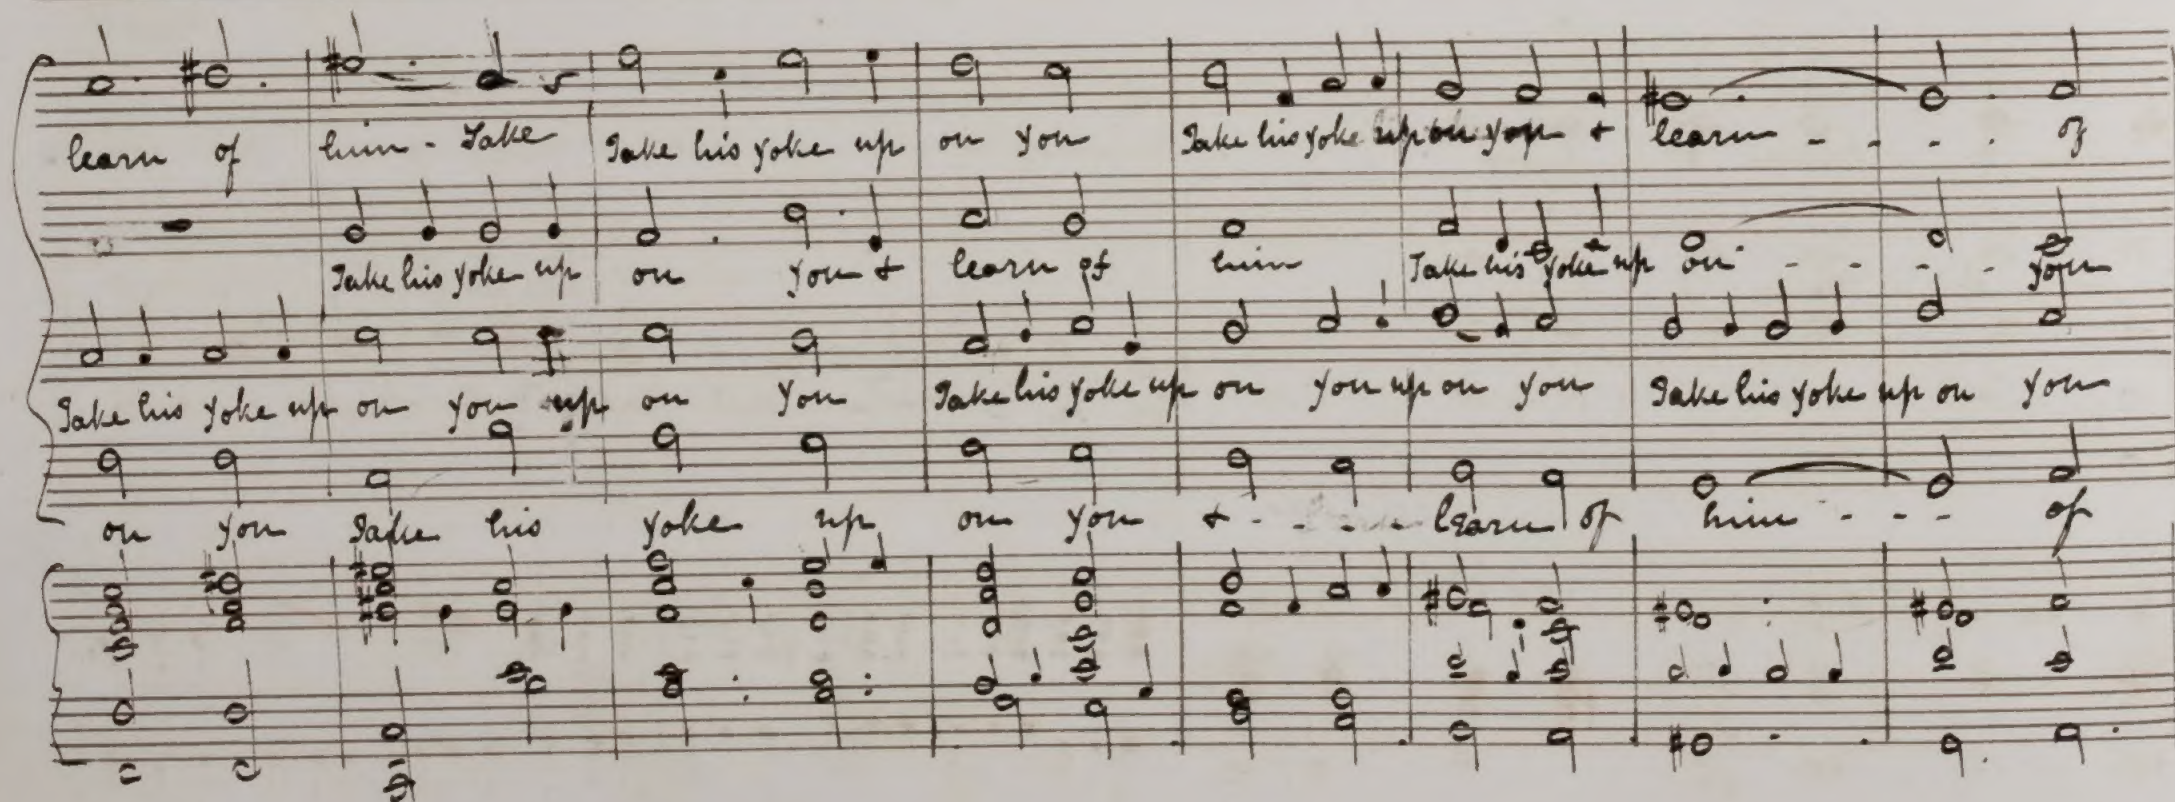 learn of him - Take Take his yoke up on you Take his yoke up on you + learn - - - . of
Take his yoke up on you + learn of him Take his yoke up on - - - - you
Take his yoke up on you up on you Take his yoke up on you up on you Take his yoke up on you
on you Take his yoke up on you + - - - learn of him - - - of